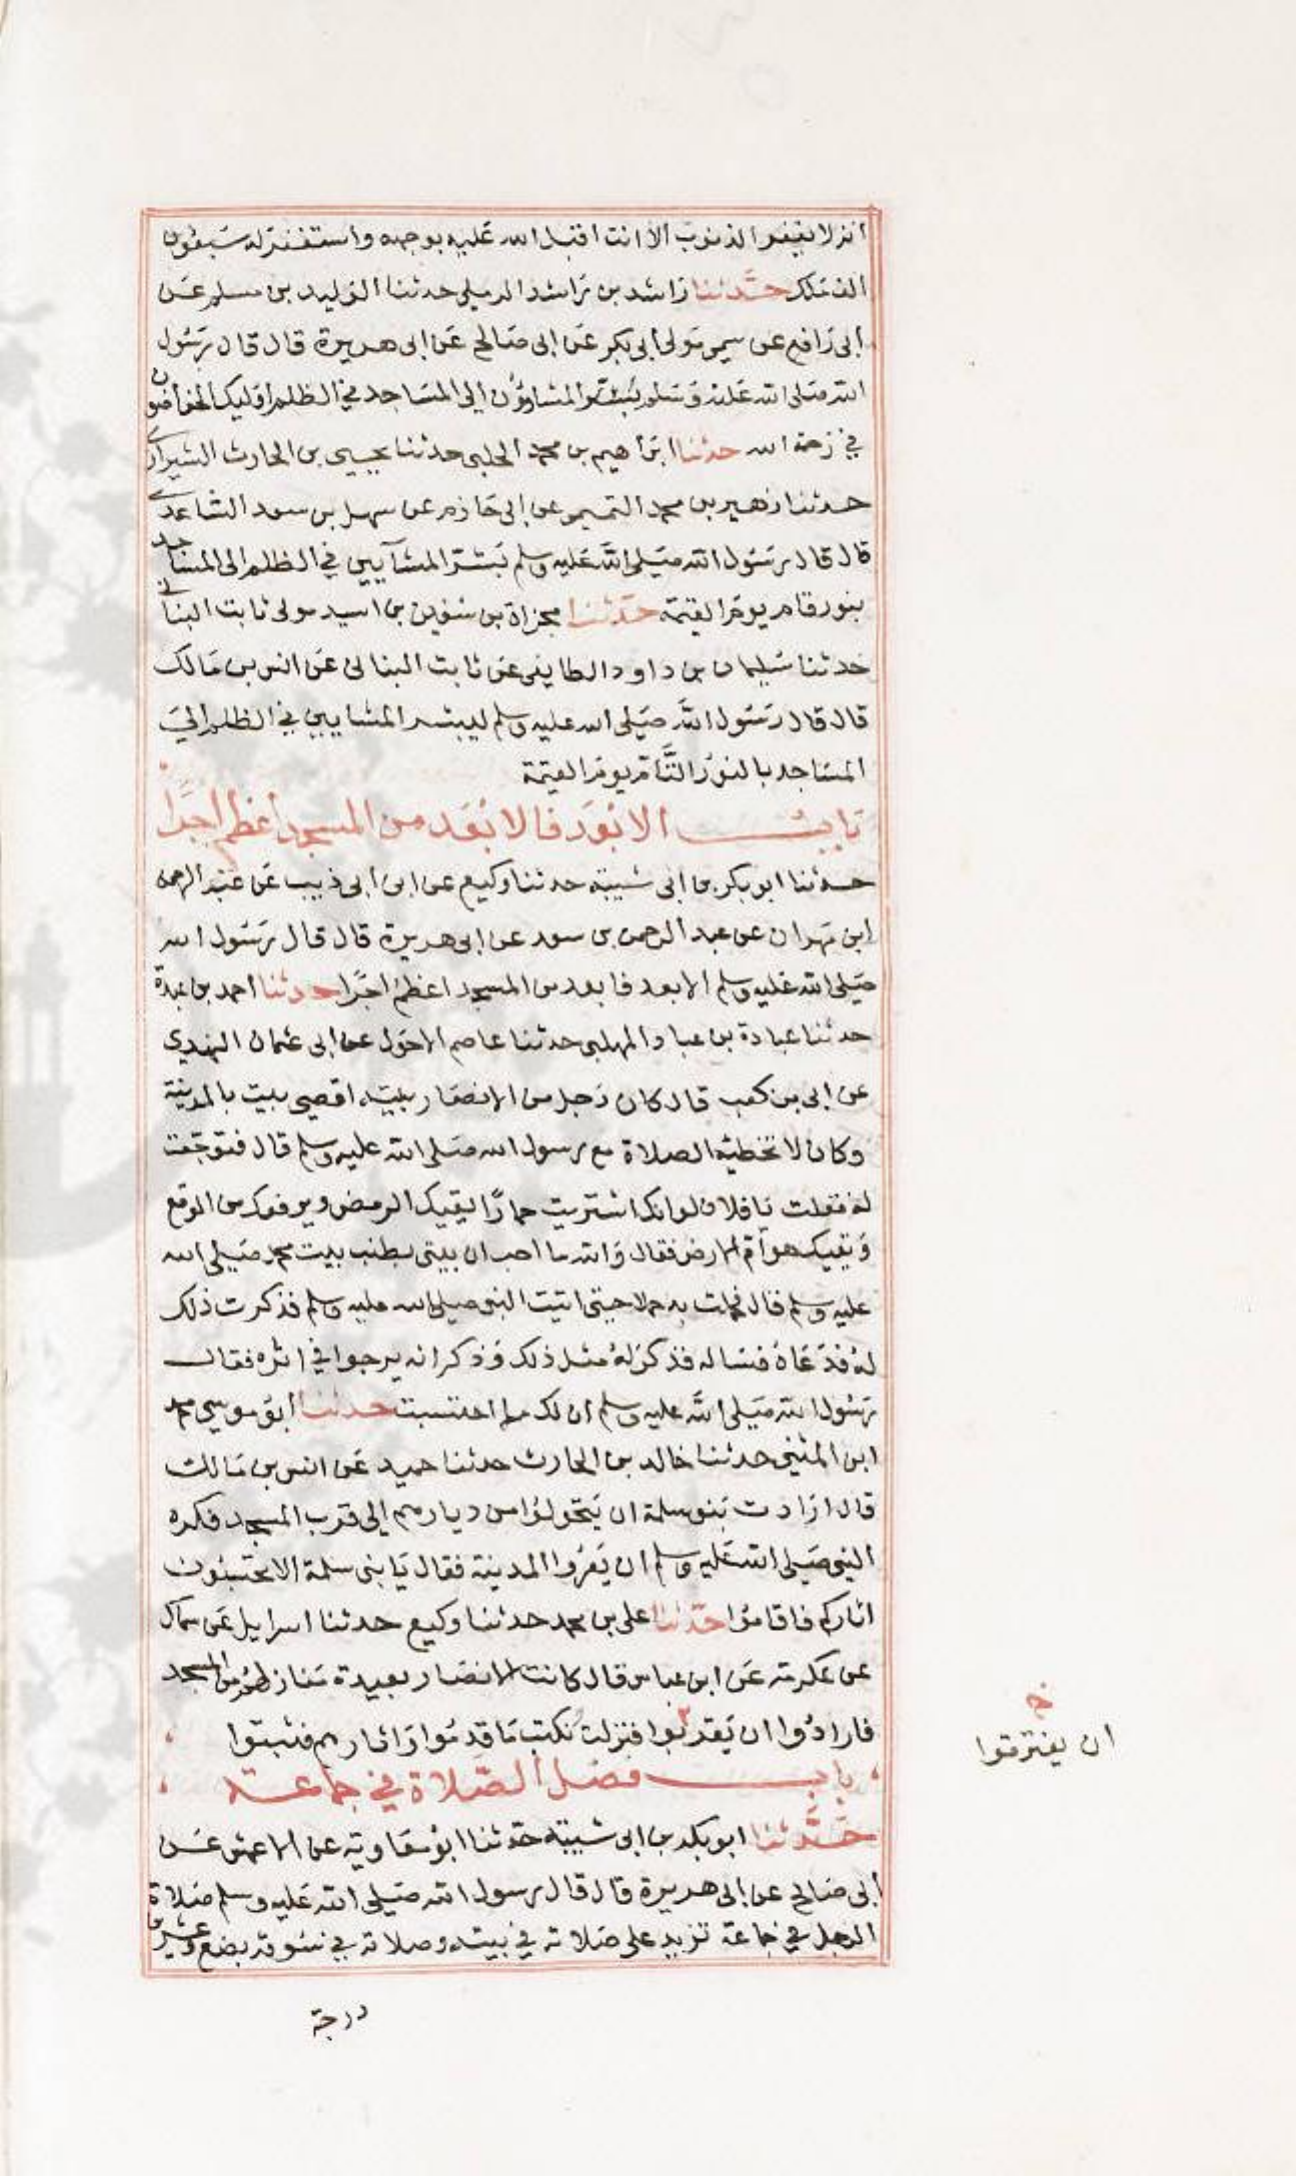 انه لا يغفر الذنوب الا انت اقبل الله عليه بوجهه واستغفر له سبعون
الف ملك حدثنا راشد بن راشد الرملي حدثنا الوليد بن مسلم عن
أبي رافع عن سمي مولى أبي بكر عن ابى صالح عن ابى هريرة قال قال رسول
الله صلى الله عليه وسلم المشاؤن إلى المساجد في الظلم اوليك الخواضون
في رحمة الله حدثنا ابراهيم بن محمد الحلبي حدثنا يحيى بن الحارث الشيرازي
حدثنا زهير بن محمد التميمي عن ابى حازم عن سهل بن سعد الساعدي
قال قال رسول الله صلى الله عليه وسلم بشر المشآيين في الظلم الى المساجد
بنور تام يوم القيمة حدثنا مجزاة بن سفين بن اسيد مولى ثابت البناني
حدثنا سليمان بن داود الطايفي عن ثابت البناني عن انس بن مالك
قال قال رسول الله صلى الله عليه وسلم ليبشر المشايين في الظلم الى
المساجد بالنور التام يوم القيمة
باب الابعد فالابعد من المسجد أعظم أجرا
حدثنا ابو بكر بن ابى شيبة حدثنا وكيع عن ابن أبى ذييب عن عبد الرحمن
ابن مهران عن عبد الرحمن بن سعد عن ابى هريرة قال قال رسول الله
صلى الله عليه وسلم الابعد فابعد من المسجد اعظم اجرا حدثنا احمد بن عبدة
حدثنا عبادة بن عباد المهلبى حدثنا عاصم الاحول عن ابى عثمان النهدي
عن ابى بن كعب قال كان رجل من الانصار بيته اقصى بيت بالمدينة
وكان لا تخطيه الصلاة مع رسول الله صلى الله عليه وسلم قال فتوجعت
له فقلت يا فلان لو انك اشتريت حمارا يقيك الرمض ويرفعك من الوقع
ويقيك هوام الارض فقال والله ما احب ان بيتى بطنب بيت محمد صلى الله
عليه وسلم قال فحملت به حملا حتى اتيت النبي صلى الله عليه وسلم فذكرت ذلك
له فدعاه فساله فذكر له مثل ذلك وذكر انه يرجوا في اثره فقال
رسول الله صلى الله عليه وسلم ان لك ما احتسبت حدثنا أبو موسى محمد
ابن المثنى حدثنا خالد بن الحارث حدثنا حميد عن انس بن مالك
قال ارادت بنو سلمة ان يتحولوا من ديارهم إلى قرب المسجد فكره
النبي صلى الله عليه وسلم ان يعروا المدينة فقال يا بنى سلمة الا تحتسبون
اثاركم فاقاموا حدثنا على بن محمد حدثنا وكيع حدثنا اسرايل عن سماك
عن عكرمة عن ابن عباس قال كانت الانصار بعيدة منازلهم من المسجد
فارادوا ان يقتربوا فنزلت نكتب ما قدموا واثارهم فثبتوا
خ
ان يقتربوا
باب فضل الصلاة في جماعة
حدثنا ابو بكر بن ابى شيبة حدثنا ابو معاوية عن الاعمش عن
أبى صالح عن ابى هريرة قال قال رسول الله صلى الله عليه وسلم صلاة
الرجل في جماعة تزيد على صلاته في بيته وصلاته في سوقه بضع وعشرين
درجة